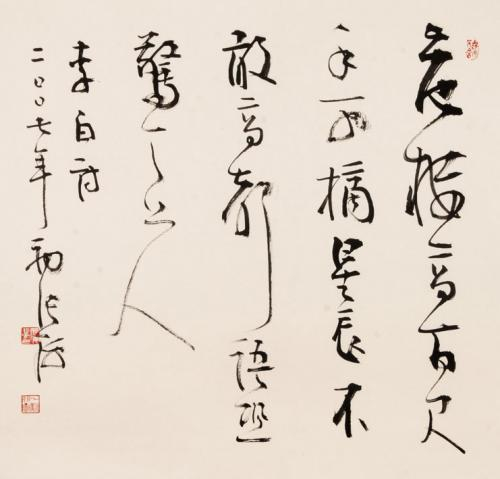 危樓高百尺
手可摘星辰不
敢高聲語恐
驚天上人
李白詩
二〇〇七年